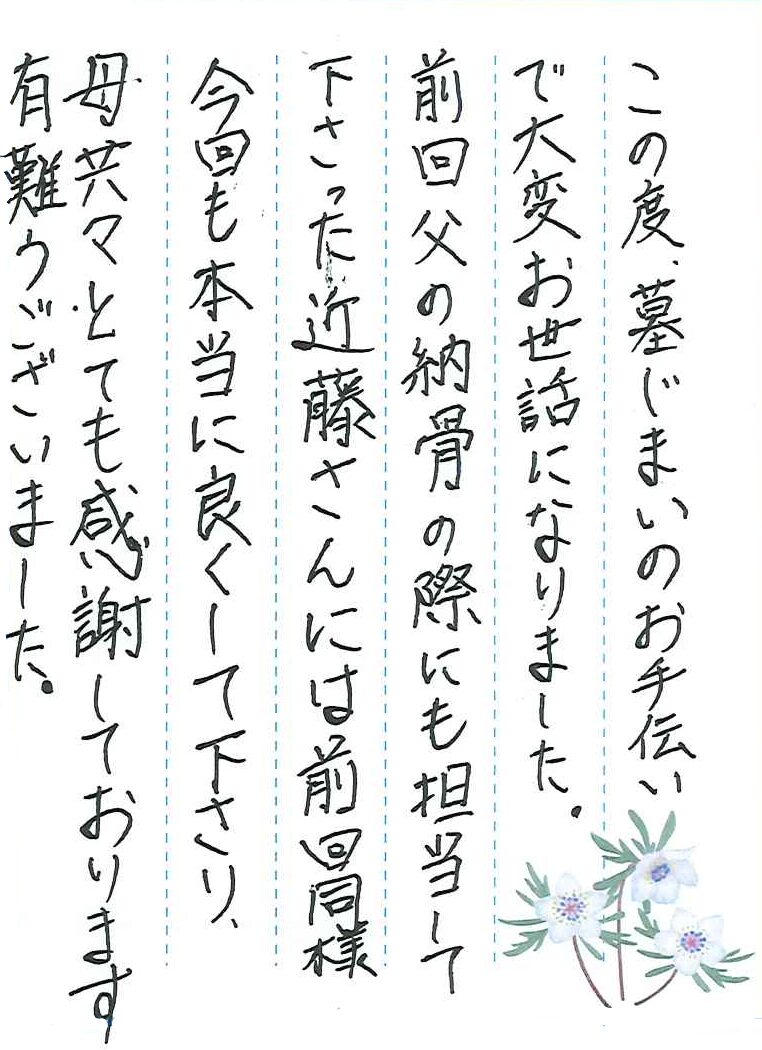 この度、墓じまいのお手伝い
で大変お世話になりました。
前回父の納骨の際にも担当して
下さった近藤さんには前回同様
今回も本当に良くして下さり、
母共々とても感謝しております
有難うございました。